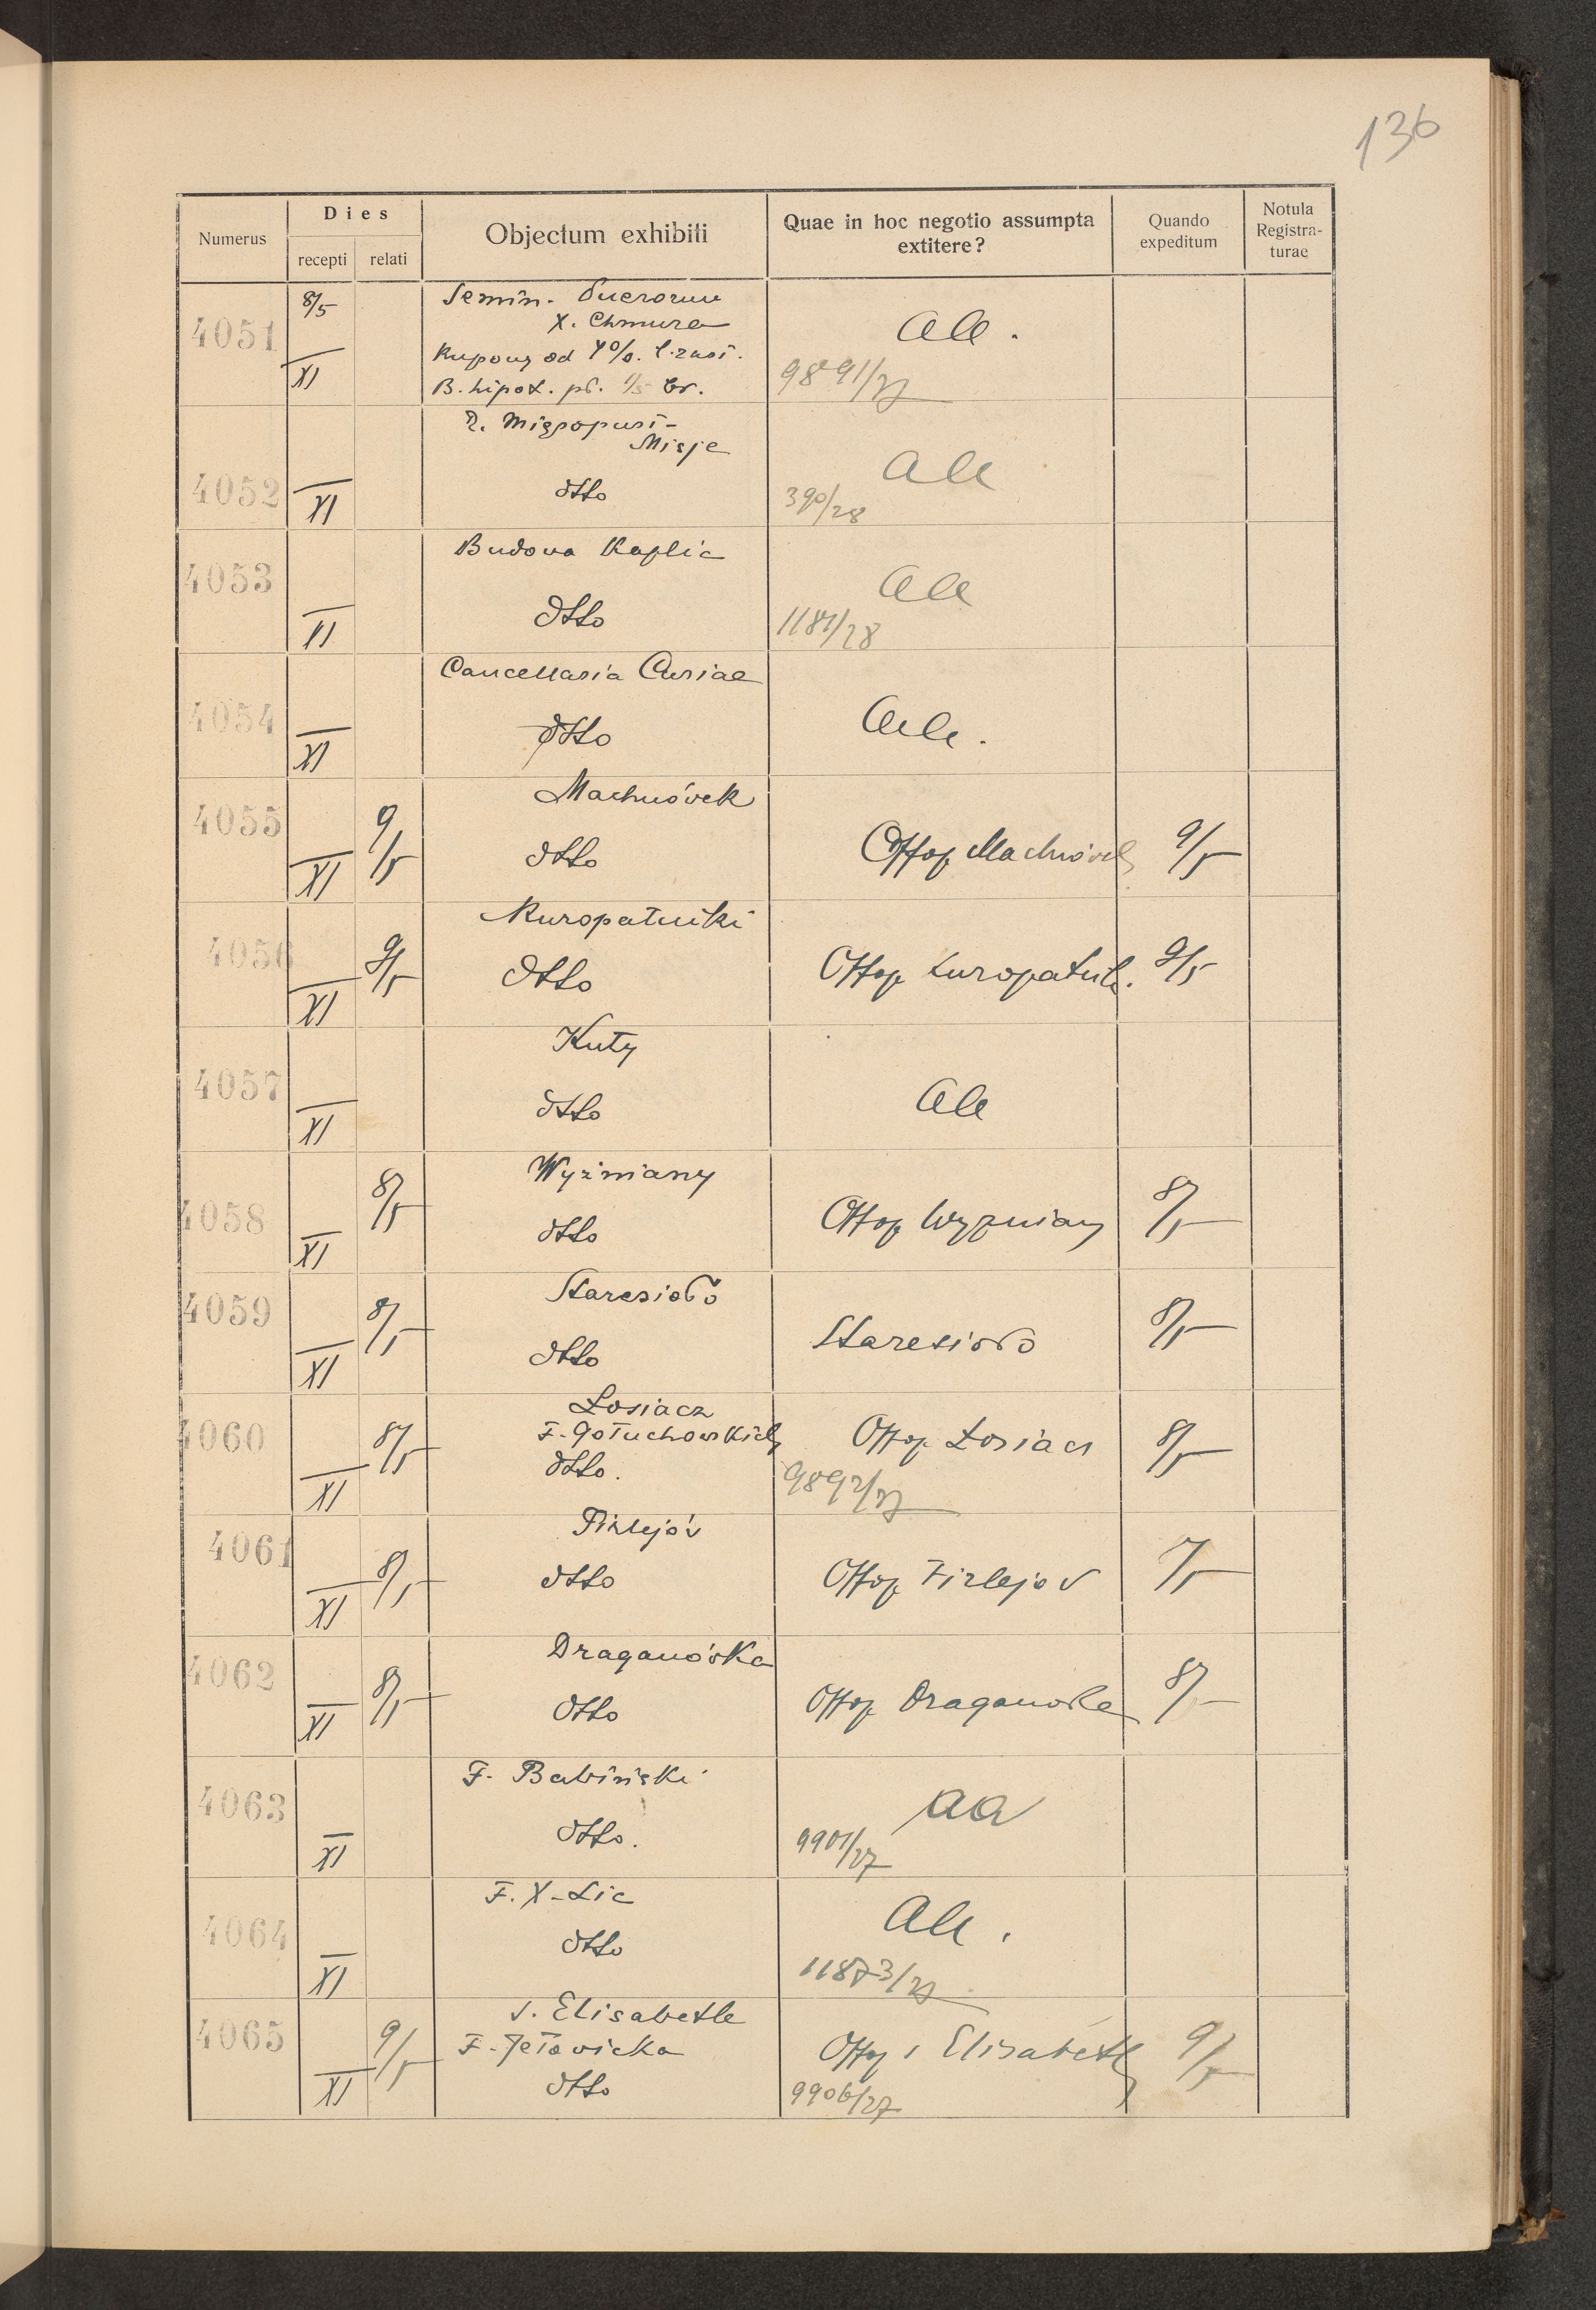 136
Numerus
Dies
recepti relati
Objectum exhibiti
Quae in hoc negotio assumpta
extitere?
Quando
expeditum
Notula
Registra-
turae
4051
8/5
XI
Semin. Puerorum
X. Chmura
Kupony od 4%. l. zast.
B. hipot. pł. 1/5 br.
9891/27
4052
XI
Misje
dtto
390/28
4053
XI
Budowa Kaplic
dtto
1181/28
4054
XI
Cancellaria Curiae
dtto
4055
XI
9/5
Machnówek
dtto
Offop Machnówek
9/5
4056
XI
9/5
Kuropatniki
dtto
Offop Kuropatnik.
9/5
4057
XI
Kuty
dtto
4058
XI
8/5
Wyżniany
dtto
Offop Wyzniany
8/5
4059
XI
8/5
Staresioło
dtto
Staresioło
8/5
4060
XI
8/5
Łosiacz
F. Gołuchowskich
dtto.
Offop Łosiacz
8/5
9892/27
4061
XI
8/5
Firlejów
dtto
Offop Firlejov
4062
XI
8/5
Draganówka
dtto
Offop Draganowka
8/5
4063
XI
F. Babiński
dtto.
aa
9901/27
4064
XI
F. X. Lic
dtto
11873/27
4065
XI
9/5
s. Elisabethe
F. Jełowicka
dtto
Offop s Elisabeth
9/5
9906/27